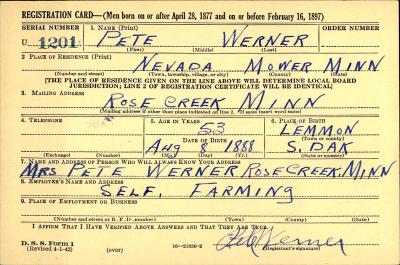 REGISTRATION CARD—(Men born on or after April 28, 1877 and on or before February 16, 1897)
SERIAL NUMBER 1. NAME (Print) ORDER NUMBER
U 1201 PETE WERNER
(First) (Middle) (Last)
2. PLACE OF RESIDENCE (Print)
NEVADA MOWER MINN
(Number and street) (Town, township, village, or city) (County) (State)
[THE PLACE OF RESIDENCE GIVEN ON THE LINE ABOVE WILL DETERMINE LOCAL BOARD
JURISDICTION; LINE 2 OF REGISTRATION CERTIFICATE WILL BE IDENTICAL]
3. MAILING ADDRESS
ROSE CREEK MINN
[Mailing address if other than place indicated on line 2. If same insert word same]
4. TELEPHONE 5. AGE IN YEARS 6. PLACE OF BIRTH
53 LEMMON
DATE OF BIRTH (Town or county)
AUG 8 1888 S. DAK
(Exchange) (Number) (Mo.) (Day) (Yr.) (State or country)
7. NAME AND ADDRESS OF PERSON WHO WILL ALWAYS KNOW YOUR ADDRESS
MRS. PETE WERNER ROSE CREEK, MINN
8. EMPLOYER'S NAME AND ADDRESS
SELF, FARMING
9. PLACE OF EMPLOYMENT OR BUSINESS
(Number and street or R. F. D. number) (Town) (County) (State)
I AFFIRM THAT I HAVE VERIFIED ABOVE ANSWERS AND THAT THEY ARE TRUE.
D. S. S. Form 1
(Revised 4-1-42) (over) 16—21630-2 Werner
(Registrant's signature)